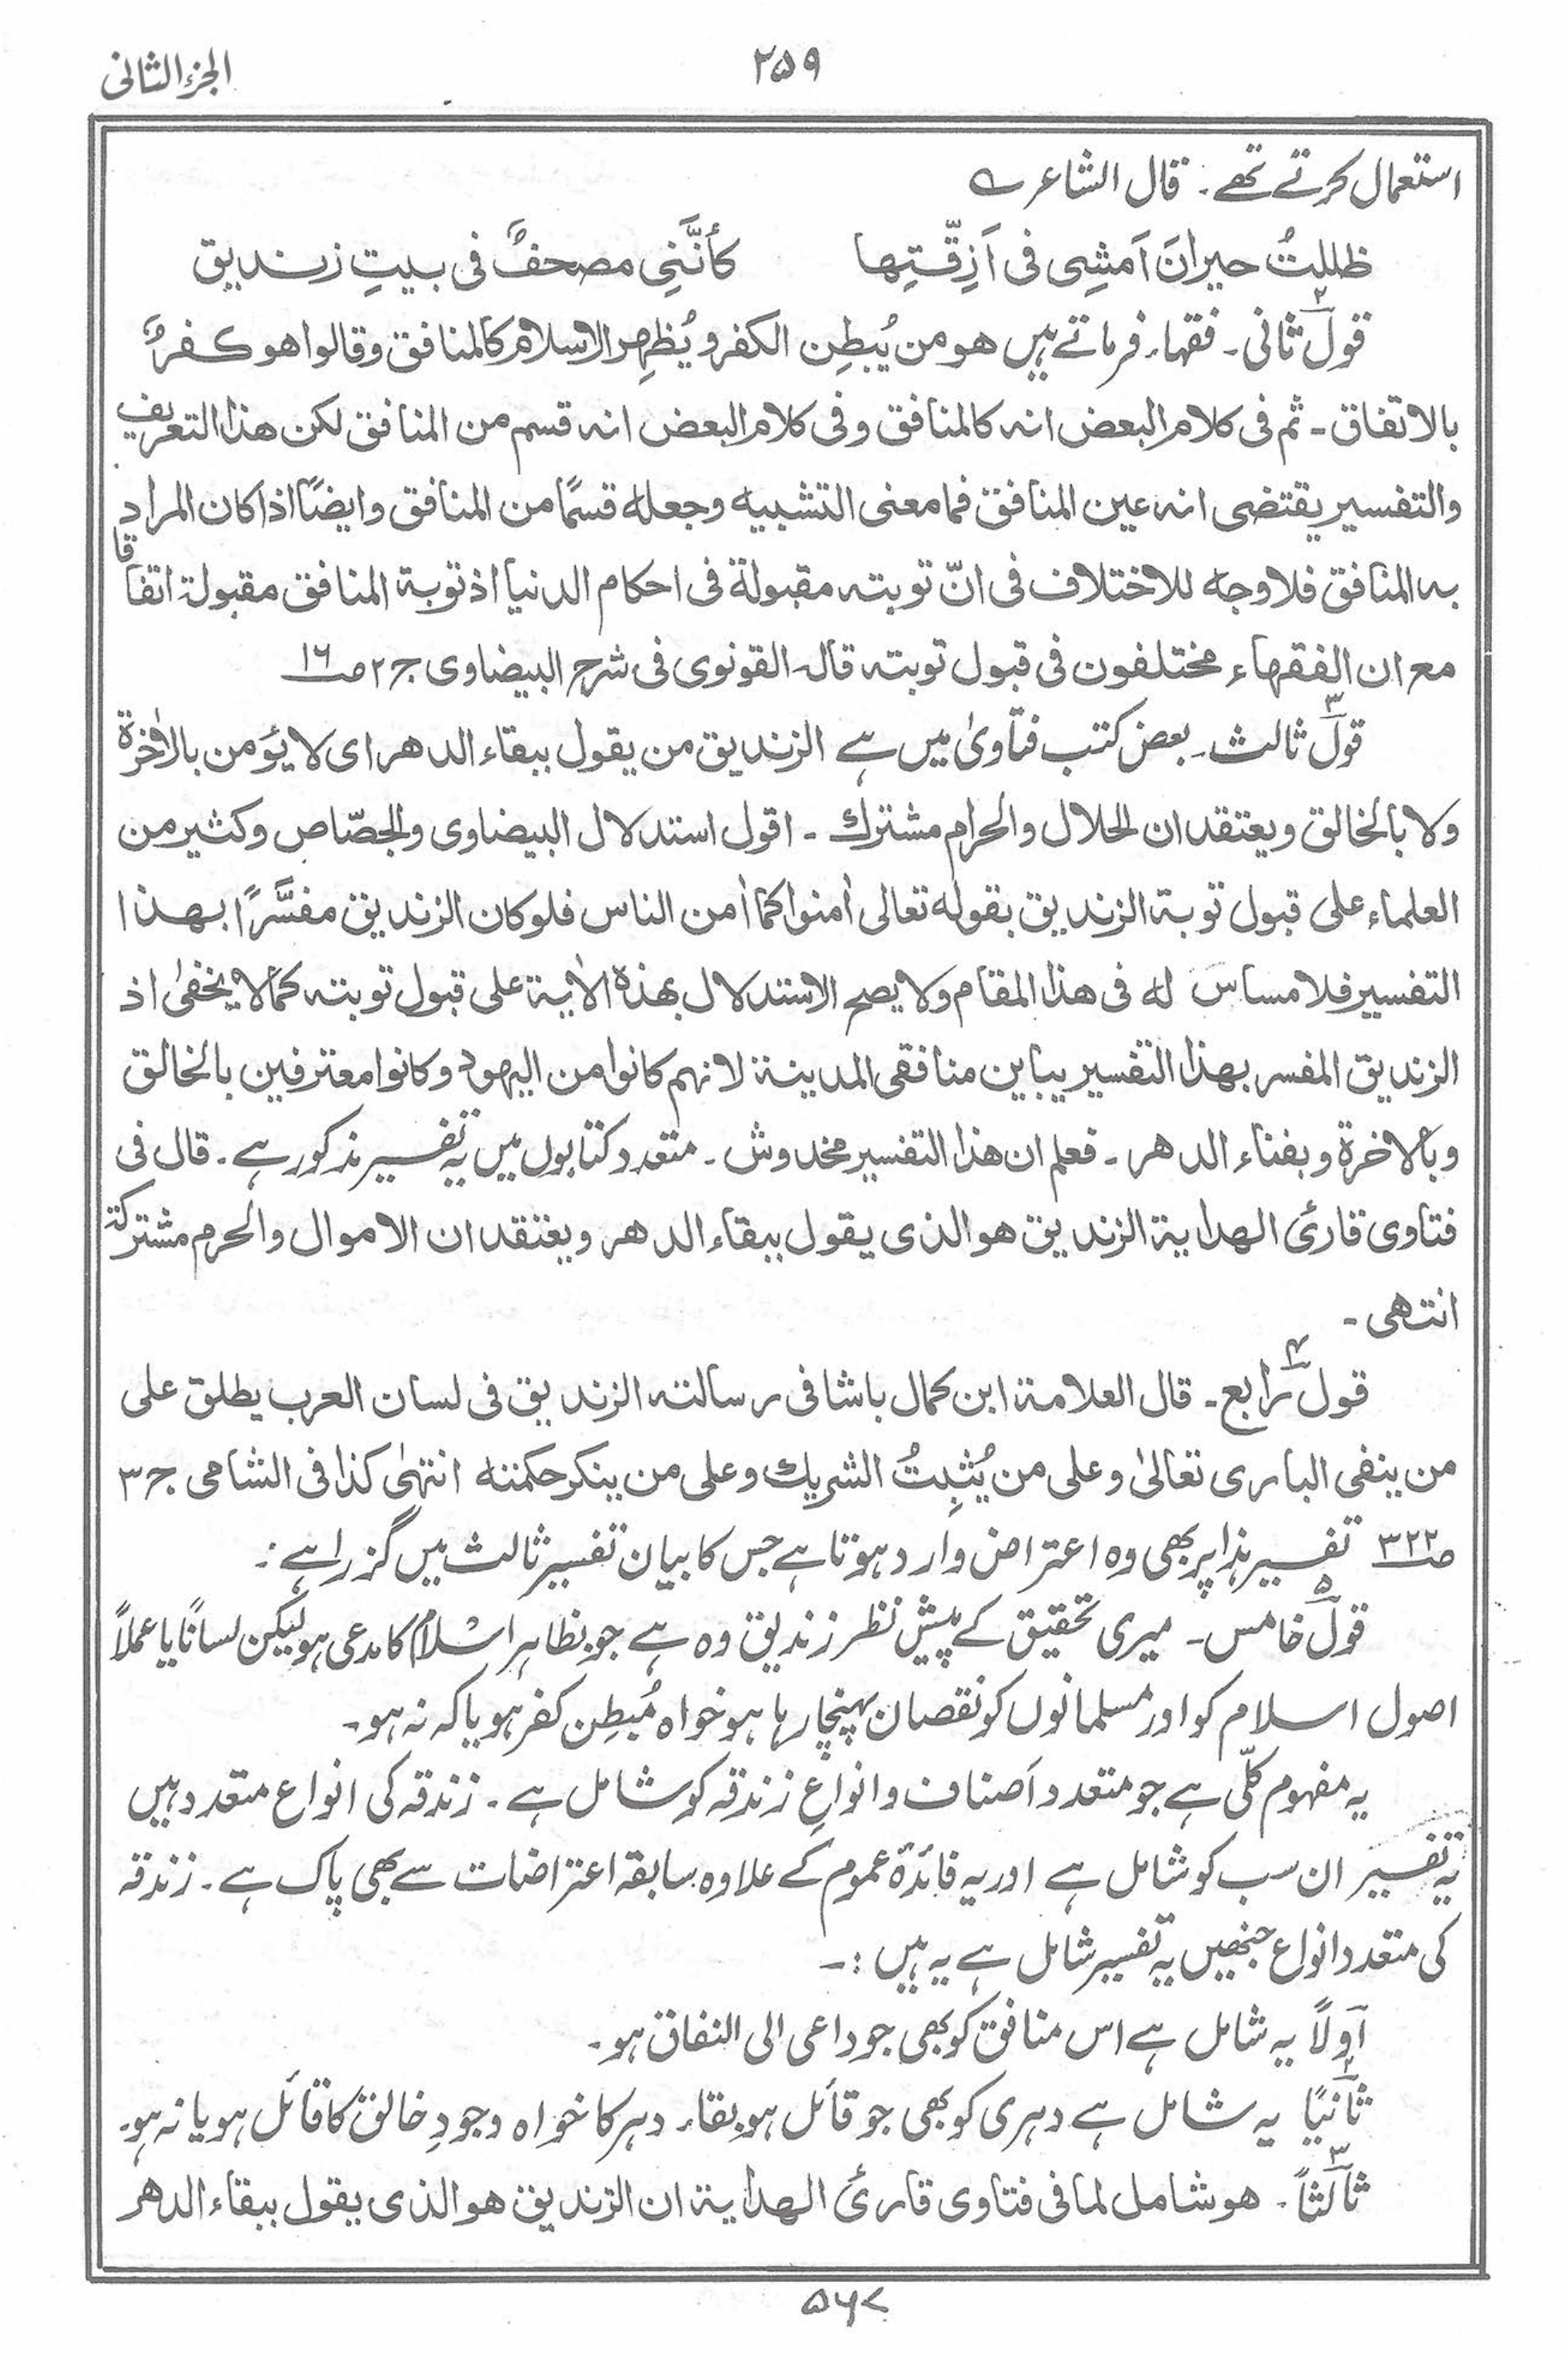 الجزء الثانی
۲۵۹
استعمال کرتے تھے ۔ قال الشاعر ؎
ظللتُ حیرانَ اَمشِی فی اَزِقّتِها کأنَّنِی مصحفٌ فی بیتِ زندیق
قول۲ ثانی ۔ فقہاء فرماتے ہیں هو من یُبطِن الکفر و یُظهِر الاسلام کالمنافق وقالوا هو کفرٌ
بالاتفاق ۔ ثم فی کلام البعض انه کالمنافق وفی کلام البعض انه قسم من المنافق لکن هذا التعریف
والتفسیر یقتضی انه عین المنافق فما معنی التشبیه وجعله قسمًا من المنافق وایضًا اذا کان المراد
به المنافق فلا وجه للاختلاف فی انّ توبته مقبولة فی احکام الدنیا اذ توبة المنافق مقبولة اتفاقا
مع ان الفقهاء مختلفون فی قبول توبته قاله القونوی فی شرح البیضاوی ج۲ ص۱۶
قول۳ ثالث ۔ بعض کتب فتاویٰ میں ہے الزندیق من یقول ببقاء الدهر ای لا یؤمن بالاٰخرة
ولا بالخالق ویعتقد ان الحلال والحرام مشترك ۔ اقول استدلال البیضاوی والجصّاص وکثیر من
العلماء علی قبول توبة الزندیق بقوله تعالی اٰمنوا کما اٰمن الناس فلو کان الزندیق مفسَّرًا بهذا
التفسیر فلا مساسَ له فی هذا المقام ولا یصح الاستدلال بهذه الاٰیة علی قبول توبته کما لا یخفیٰ اذ
الزندیق المفسر بهذا التفسیر یباین منافقی المدینة لانهم کانوا من الیهود وکانوا معترفین بالخالق
وبالاخرة وبفناء الدهر ۔ فعلم ان هذا التفسیر مخدوش ۔ متعدد کتابوں میں یہ تفسیر مذکور ہے ۔ قال فی
فتاوی قارئ الهدایة الزندیق هو الذی یقول ببقاء الدهر ویعتقد ان الاموال والحرم مشترکة
انتهی ۔
قول۴ رابع ۔ قال العلامة ابن کمال باشا فی رسالته الزندیق فی لسان العرب یطلق علی
من ینفی الباری تعالیٰ وعلی من یُثبِتُ الشریك وعلی من ینکر حکمته انتهیٰ کذا فی الشامی ج۳
ص۳۲۲ تفسیر ہذا پر بھی وہ اعتراض وارد ہوتا ہے جس کا بیان تفسیر ثالث میں گزرا ہے :
قول۵ خامس ۔ میری تحقیق کے پیش نظر زندیق وہ ہے جو بظاہر اسلام کا مدعی ہو لیکن لسانًا یا عملاً
اصول اسلام کو اور مسلمانوں کو نقصان پہنچا رہا ہو خواہ مُبطِن کفر ہو یا کہ نہ ہو ۔
یہ مفہوم کلّی ہے جو متعدد اَصناف و انواعِ زندقہ کو شامل ہے ۔ زندقہ کی انواع متعدد ہیں
یہ تفسیر ان سب کو شامل ہے اور یہ فائدۂ عموم کے علاوہ سابقہ اعتراضات سے بھی پاک ہے ۔ زندقہ
کی متعدد انواع جنھیں یہ تفسیر شامل ہے یہ ہیں :۔
اَولاً یہ شامل ہے اس منافق کو بھی جو داعی الی النفاق ہو ۔
ثانیًا یہ شامل ہے دہری کو بھی جو قائل ہو بقاء دہر کا خواہ وجودِ خالق کا قائل ہو یا نہ ہو ۔
ثالثاً ۔ هو شامل لما فی فتاوی قارئ الهدایة ان الزندیق هو الذی یقول ببقاء الدهر
۵۶۷